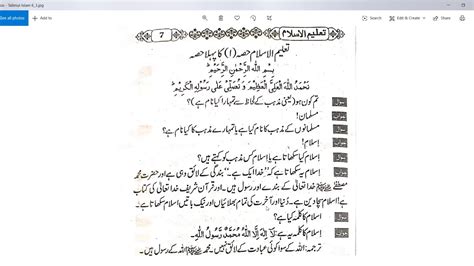 os - Talimul Islam 4_3.jpg
See all photos + Add to
Edit & Create Share
تعلیم الاسلام
7
تعلیم الاسلام حصہ (۱) کا پہلا حصہ
بِسْمِ اللّٰهِ الرَّحْمٰنِ الرَّحِيْمِ
نَحْمَدُ اللّٰهَ الْعَلِيَّ الْعَظِيْمَ وَ نُصَلِّيْ عَلٰى رَسُوْلِهِ الْكَرِيْمِ
سوال تم کون ہو (یعنی مذہب کے لحاظ سے تمہارا کیا نام ہے)؟
جواب مسلمان!
سوال مسلمانوں کے مذہب کا نام کیا ہے یا تمہارے مذہب کا کیا نام ہے؟
جواب اِسلام!
سوال اِسلام کیا سکھاتا ہے یا اِسلام کس مذہب کو کہتے ہیں؟
جواب اِسلام یہ سکھاتا ہے کہ "خدا ایک ہے۔" بندگی کے لائق وہی ہے اور حضرت محمد
مصطفےٰ ﷺ خدا تعالیٰ کے بندے اور رسول ہیں۔ اور قرآن شریف خدا تعالیٰ کی کتاب
ہے اِسلام سچا دین ہے۔ دُنیا اور آخرت کی تمام بھلائیاں اور نیک باتیں اِسلام سکھاتا ہے۔
سوال اِسلام کا کلمہ کیا ہے؟
جواب اِسلام کا کلمہ یہ ہے: لَآ اِلٰهَ اِلَّا اللّٰهُ مُحَمَّدٌ رَّسُوْلُ اللّٰهِ۔
ترجمہ: اللہ کے سوا کوئی عبادت کے لائق نہیں۔ محمد ﷺ اللہ کے رسول ہیں۔